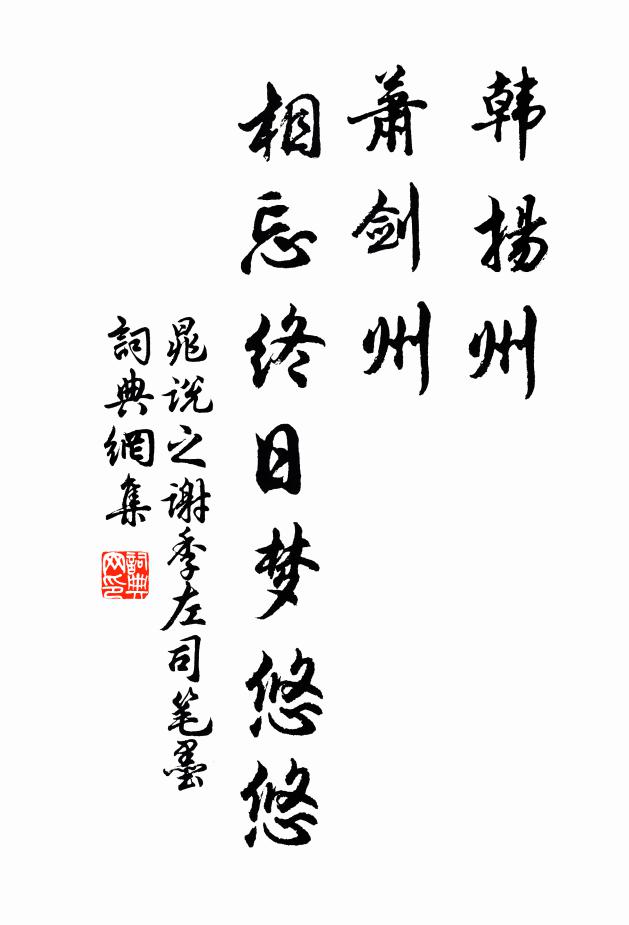 韩揚州
萧剑州
相忘终日梦悠悠
晁说之谢季左司笔墨
詞典網集
詞典网印